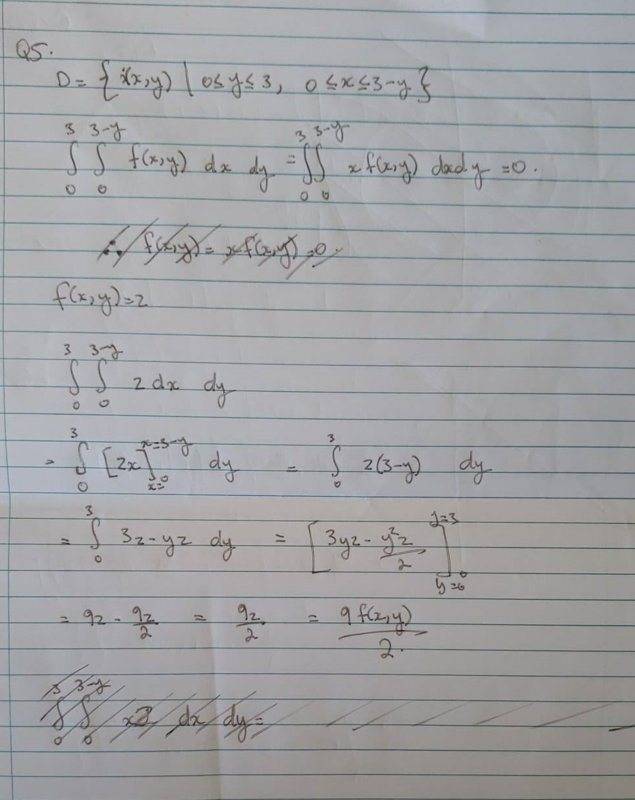 Q5.
D = { (x,y) | 0≤y≤3, 0≤x≤3-y }
∫₀³ ∫₀³⁻ʸ f(x,y) dx dy = ∫₀³ ∫₀³⁻ʸ x f(x,y) dx dy = 0.
∴ f(x,y) = x f(x,y) = 0.
f(x,y) = z
∫₀³ ∫₀³⁻ʸ z dx dy
= ∫₀³ [zx]ₓ₌₀ˣ⁼³⁻ʸ dy = ∫₀³ z(3-y) dy
= ∫₀³ 3z - yz dy = [3yz - y²z/2] y=0 y=3
= 9z - 9z/2 = 9z/2 = 9f(x,y)/2.
∫₀³ ∫₀³⁻ʸ xz dx dy =